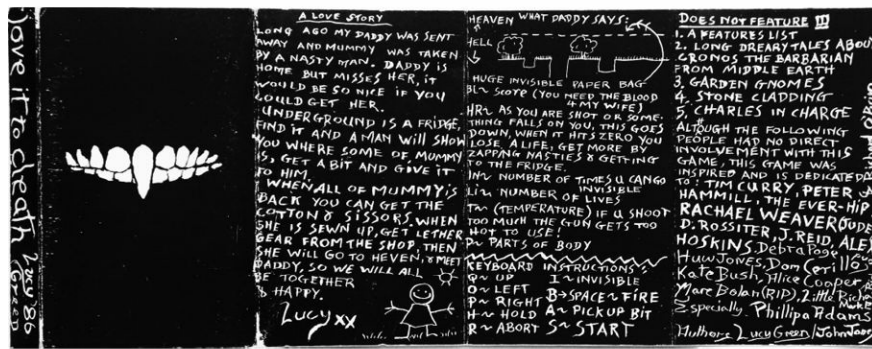 love it to death Lucy 86
GREED
A LOVE STORY
LONG AGO MY DADDY WAS SENT
AWAY AND MUMMY WAS TAKEN
BY A NASTY MAN. DADDY IS
HOME BUT MISSES HER, IT
WOULD BE SO NICE IF YOU
COULD GET HER.
UNDERGROUND IS A FRIDGE,
FIND IT AND A MAN WILL SHOW
YOU WHERE SOME OF MUMMY
IS, GET A BIT AND GIVE IT
TO HIM.
WHEN ALL OF MUMMY IS
BACK YOU CAN GET THE
COTTON & SISSORS, WHEN
SHE IS SEWN UP, GET LETHER
GEAR FROM THE SHOP, THEN
SHE WILL GO TO HEVEN, & MEET
DADDY, SO WE WILL ALL
BE TOGETHER
& HAPPY.
Lucy xx
HEAVEN WHAT DADDY SAYS:
HELL
HUGE INVISIBLE PAPER BAG
BL~ SCORE (YOU NEED THE BLOOD
4 MY WIFE)
HR~ AS YOU ARE SHOT OR SOME-
THING FALLS ON YOU, THIS GOES
DOWN, WHEN IT HITS ZERO YOU
LOSE A LIFE, GET MORE BY
ZAPPING NASTIES & GETTING
TO THE FRIDGE.
IN~ NUMBER OF TIMES U CAN GO
INVISIBLE
LI~ NUMBER OF LIVES
TM~ (TEMPERATURE) IF U SHOOT
TOO MUCH THE GUN GETS TOO
HOT TO USE!
P~ PARTS OF BODY
KEYBOARD INSTRUCTIONS:
Q~ UP I~INVISIBLE
O~ LEFT B→SPACE~FIRE
P~ RIGHT A~PICKUP BIT
H~ HOLD S~START
R~ ABORT
DOES NOT FEATURE III
1. A FEATURES LIST
2. LONG DREARY TALES ABOUT
CRONOS THE BARBARIAN
FROM MIDDLE EARTH
3. GARDEN GNOMES
4. STONE CLADDING
5. CHARLES IN CHARGE
ALTOUGH THE FOLLOWING
PEOPLE HAD NO DIRECT
INVOLVEMENT WITH THIS
GAME, THIS GAME WAS
INSPIRED AND IS DEDICATED
TO: TIM CURRY, PETER
HAMMILL, THE EVER-HIP
RACHAEL WEAVER, JUDE
D. ROSSITER, J. REID, ALEX
HOSKINS, Debra Page
Huw Jones, Dom
Kate Bush, Alice Cooper,
Marc Bolan (RIP), Little Richard
Especially Phillipa Adams
Authors Lucy Green / John
Richard O'Brien